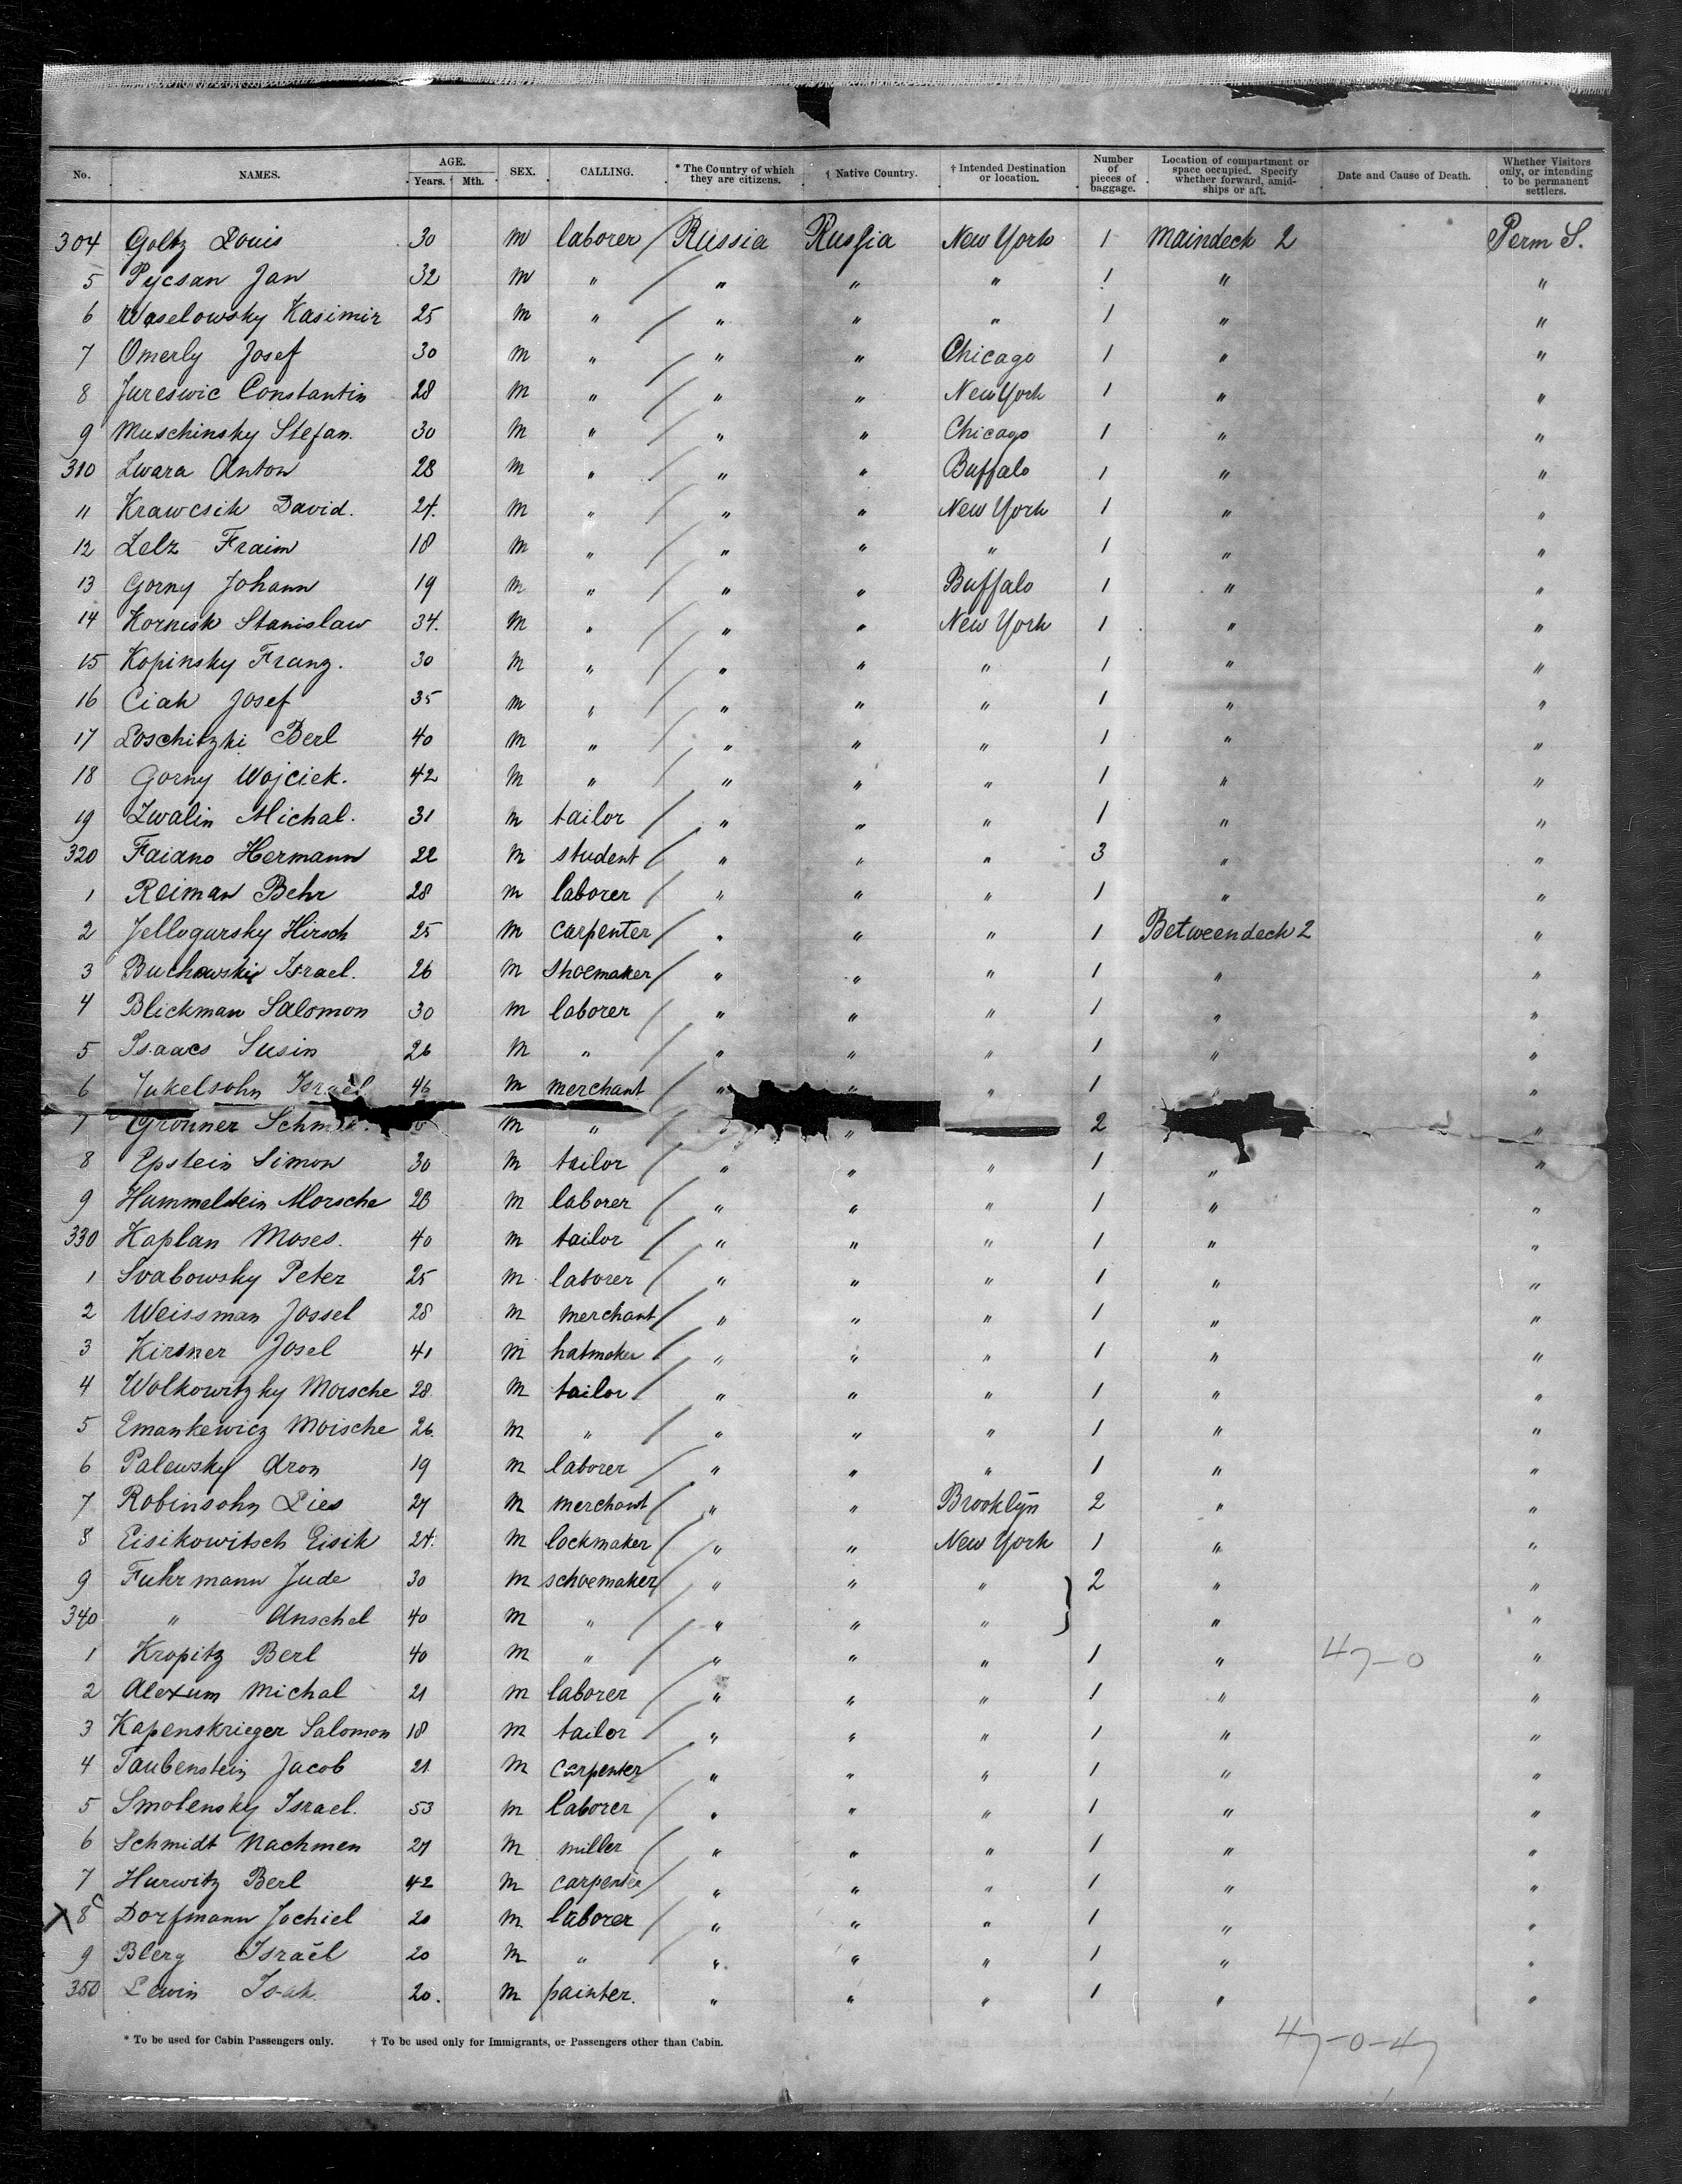 No. NAMES. AGE. Years. Mth. SEX. CALLING. * The Country of which they are citizens. † Native Country. † Intended Destination or location. Number of pieces of baggage. Location of compartment or space occupied. Specify whether forward, amid-ships or aft. Date and Cause of Death. Whether Visitors only, or intending to be permanent settlers.
304 Goltz Louis 30 m laborer / Russia Russia New York 1 Maindeck 2 Perm S.
5 Pycsan Jan 32 m " / " " " 1 " "
6 Waselowsky Kasimir 25 m " / " " " 1 " "
7 Omerly Josef 30 m " / " " Chicago 1 " "
8 Jureswic Constantin 28 m " / " " New York 1 " "
9 Muschinsky Stefan. 30 m " / " " Chicago 1 " "
310 Zwara Anton 28 m " / " " Buffalo 1 " "
11 Krawcsik David. 24. m " / " " New York 1 " "
12 Lelz Fraim 18 m " / " " " 1 " "
13 Gorny Johann 19 m " / " " Buffalo 1 " "
14 Kornisk Stanislaw 34. m " / " " New York 1 " "
15 Kopinsky Franz. 30 m " / " " " 1 " "
16 Ciak Josef 35 m " / " " " 1 " "
17 Loschitzki Berl 40 m " / " " " 1 " "
18 Gorny Wojciek. 42 m " / " " " 1 " "
19 Zwalin Michal. 31 m tailor / " " " 1 " "
320 Faiano Hermann 22 m student / " " " 3 " "
1 Reiman Behr 28 m laborer / " " " 1 " "
2 Jellogursky Hirsch 25 m carpenter / " " " 1 Betweendeck 2 "
3 Buchowskie Israel. 26 m shoemaker / " " " 1 " "
4 Blickman Salomon 30 m laborer / " " " 1 " "
5 Isaacs Susin 26 m " / " " " 1 " "
6 Jukelsohn Israel 46 m merchant / " " " 1 " "
7 Gronner m " " 2 "
8 Epstein Simon 30 m tailor / " " " 1 " "
9 Hummelstein Morsche 28 m laborer / " " " 1 " "
330 Kaplan Moses. 40 m tailor / " " " 1 " "
1 Svabowsky Peter 25 m laborer / " " " 1 " "
2 Weissman Jossel 28 m merchant / " " " 1 " "
3 Kirsner Josel 41 m hatmaker / " " " 1 " "
4 Wolkowitzky Morsche 28. m tailor / " " " 1 " "
5 Emankewicz Moische 26. m " / " " " 1 " "
6 Palewsky Aron 19 m laborer / " " " 1 " "
7 Robinsohn Lies 27 m merchant / " " Brooklyn 2 " "
8 Eisikowitsch Eisik 24. m lockmaker / " " New York 1 " "
9 Fuhrmann Jude 30 m schoemaker / " " " } 2 " "
340 " Anschel 40 m " / " " " " "
1 Kropitz Berl 40 m " / " " " 1 " 47-0 "
2 Alexum Michal 21 m laborer / " " " 1 " "
3 Kapenskrieger Salomon 18 m tailor / " " " 1 " "
4 Taubenstein Jacob 21 m carpenter / " " " 1 " "
5 Smolensky Israel. 53 m laborer / " " " 1 " "
6 Schmidt Nachmen 27 m miller / " " " 1 " "
7 Hurwitz Berl 42 m carpenter / " " " 1 " "
X 8 Dorfmann Jochiel 20 m laborer / " " " 1 " "
9 Blerg Israël 20 m " / " " " 1 " "
350 Lewin Isak 20. m painter. " " " 1 " "
* To be used for Cabin Passengers only. † To be used only for Immigrants, or Passengers other than Cabin.
47-0-47